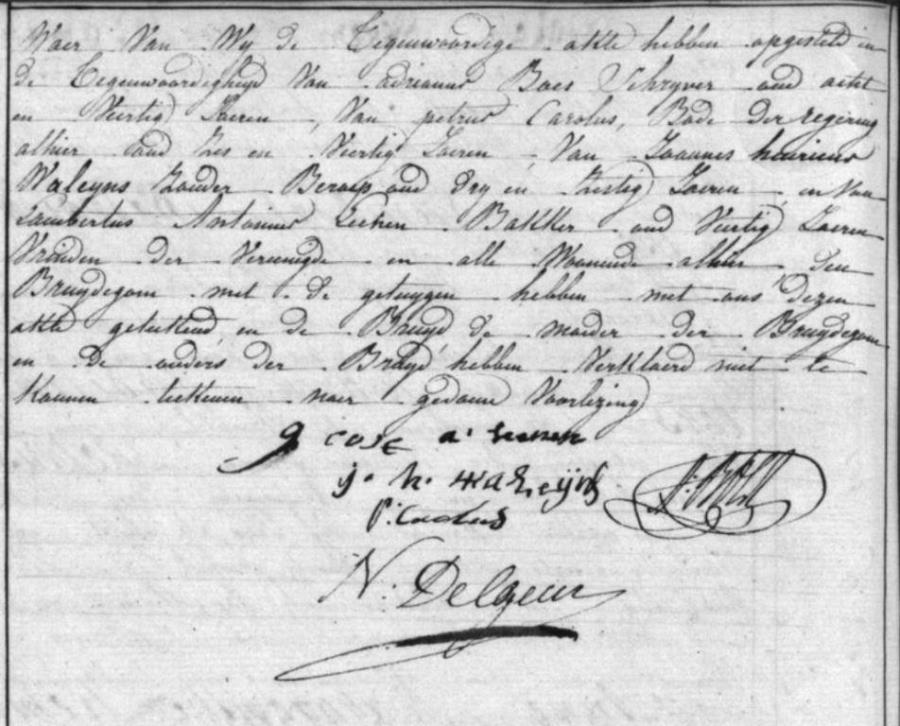 Waer Van Wy de Tegenwoordige akte hebben opgesteld in
de Tegenwoordigheyd Van adrianus Baes Schryver oud acht
en Veertig Jaeren, Van petrus Carolus, Bode der regering
alhier oud Zes en Veertig Jaeren, Van Joannes henricus
Waleyns Zonder Beroep oud dry en Zestig Jaeren, en Van
Lambertus Antonius Bakker oud Veertig Jaeren
Vrinden der Vereenigde en alle Woonende alhier Den
Bruydegom met de getuygen hebben met ons Dezen
akte geteekend, en de Bruyd de moeder der Bruydegom
en De ouders der Bruyd hebben Verklaerd niet te
Konnen teekenen naer gedaene Voorlezing
j. h. Waleijns
P. Carolus
N. Delgeur